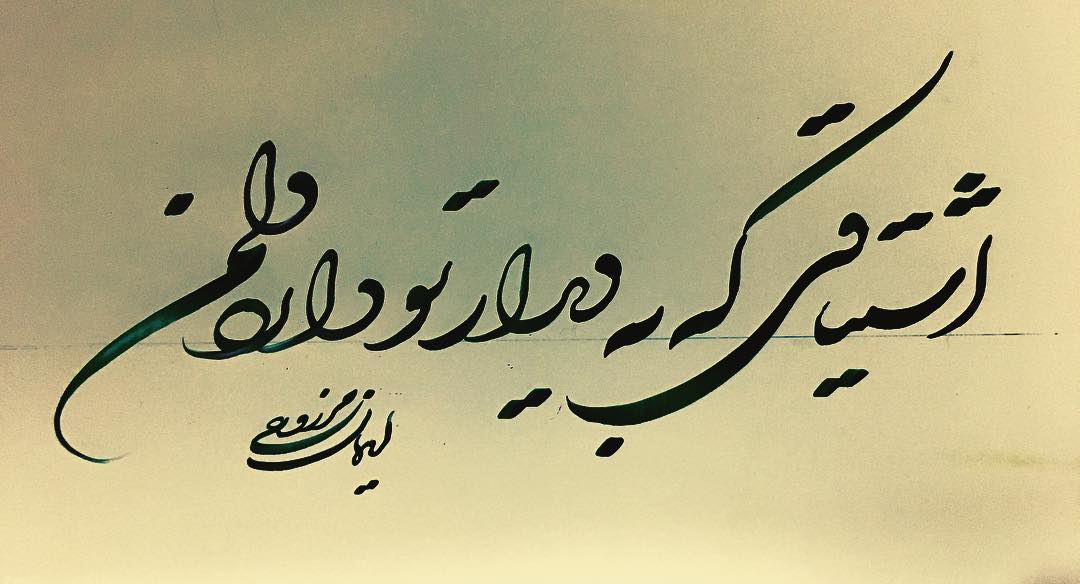 اشتیاقی که به دیدار تو دارد دل من
ایمان مرزوقی